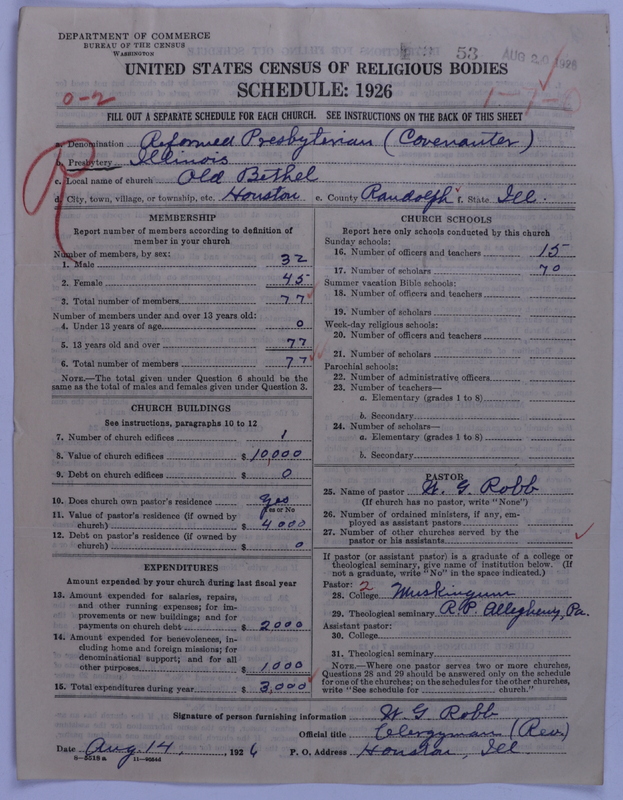 DEPARTMENT OF COMMERCE
BUREAU OF THE CENSUS
WASHINGTON
53
AUG 20 1926
UNITED STATES CENSUS OF RELIGIOUS BODIES
SCHEDULE: 1926
0-2
FILL OUT A SEPARATE SCHEDULE FOR EACH CHURCH. SEE INSTRUCTIONS ON THE BACK OF THIS SHEET
a. Denomination Reformed Presbyterian (Covenanter)
b. Presbytery Illinois
c. Local name of church Old Bethel
d. City, town, village, or township, etc. Houston e. County Randolph f. State Ill.
R
MEMBERSHIP
Report number of members according to definition of
member in your church
Number of members, by sex:
1. Male 32
2. Female 45
3. Total number of members 77
Number of members under and over 13 years old:
4. Under 13 years of age 0
5. 13 years old and over 77
6. Total number of members 77
NOTE.—The total given under Question 6 should be the
same as the total of males and females given under Question 3.
CHURCH BUILDINGS
See instructions, paragraphs 10 to 12
7. Number of church edifices 1
8. Value of church edifices $ 10,000
9. Debt on church edifices $ 0
10. Does church own pastor's residence Yes
Yes or No
11. Value of pastor's residence (if owned by
church) $ 4000
12. Debt on pastor's residence (if owned by
church) $ 0
EXPENDITURES
Amount expended by your church during last fiscal year
13. Amount expended for salaries, repairs,
and other running expenses; for im-
provements or new buildings; and for
payments on church debt $ 2000
14. Amount expended for benevolences, in-
cluding home and foreign missions; for
denominational support; and for all
other purposes $ 1000
15. Total expenditures during year $ 3,000
CHURCH SCHOOLS
Report here only schools conducted by this church
Sunday schools:
16. Number of officers and teachers 15
17. Number of scholars 70
Summer vacation Bible schools:
18. Number of officers and teachers
19. Number of scholars
Week-day religious schools:
20. Number of officers and teachers
21. Number of scholars
Parochial schools:
22. Number of administrative officers
23. Number of teachers—
a. Elementary (grades 1 to 8)
b. Secondary
24. Number of scholars—
a. Elementary (grades 1 to 8)
b. Secondary
PASTOR
25. Name of pastor W. G. Robb
(If church has no pastor, write "None")
26. Number of ordained ministers, if any, em-
ployed as assistant pastors
27. Number of other churches served by the
pastor or his assistants
If pastor (or assistant pastor) is a graduate of a college or
theological seminary, give name of institution below. (If
not a graduate, write "No" in the space indicated.)
Pastor: 2
28. College Muskingum
29. Theological seminary R.P. Allegheny, Pa.
Assistant pastor:
30. College
31. Theological seminary
NOTE.—Where one pastor serves two or more churches,
Questions 28 and 29 should be answered only on the schedule
for one of the churches; on the schedules for the other churches,
write "See schedule for church."
Signature of person furnishing information W G Robb
Official title Clergyman (Rev)
Date Aug. 14, 1926 P. O. Address Houston, Ill
8-5518a